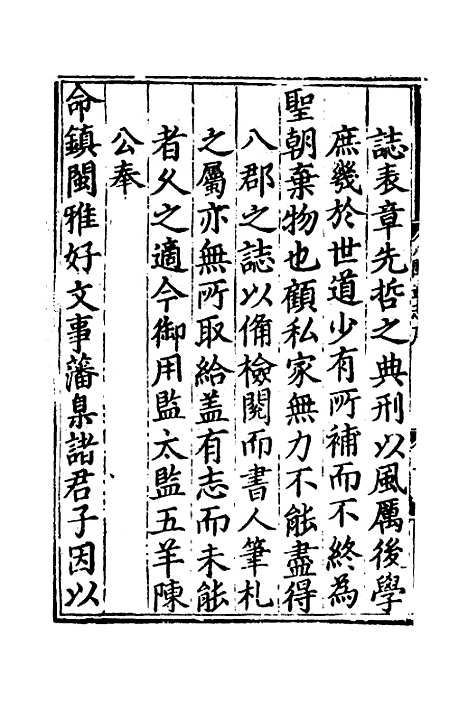 誌表章先哲之典刑以風厲後學
庶幾於世道少有所補而不終為
聖朝棄物也顧私家無力不能盡得
八郡之誌以備檢閱而書人筆札
之屬亦無所取給盖有志而未能
者乆之適今御用監太監五羊陳
公奉
命鎮閩雅好文事藩臬諸君子因以